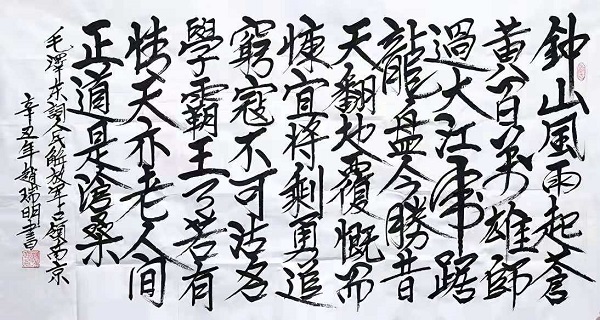 鈡山風雨起蒼
黄百萬雄師
過大江虎踞
龍盤今勝昔
天翻地覆慨而
慷宜將剩勇追
窮寇不可沽名
學霸王若有
情天亦老人间
正道是滄桑
毛澤東詞人民解放軍占領南京
辛丑年趙瑞明書